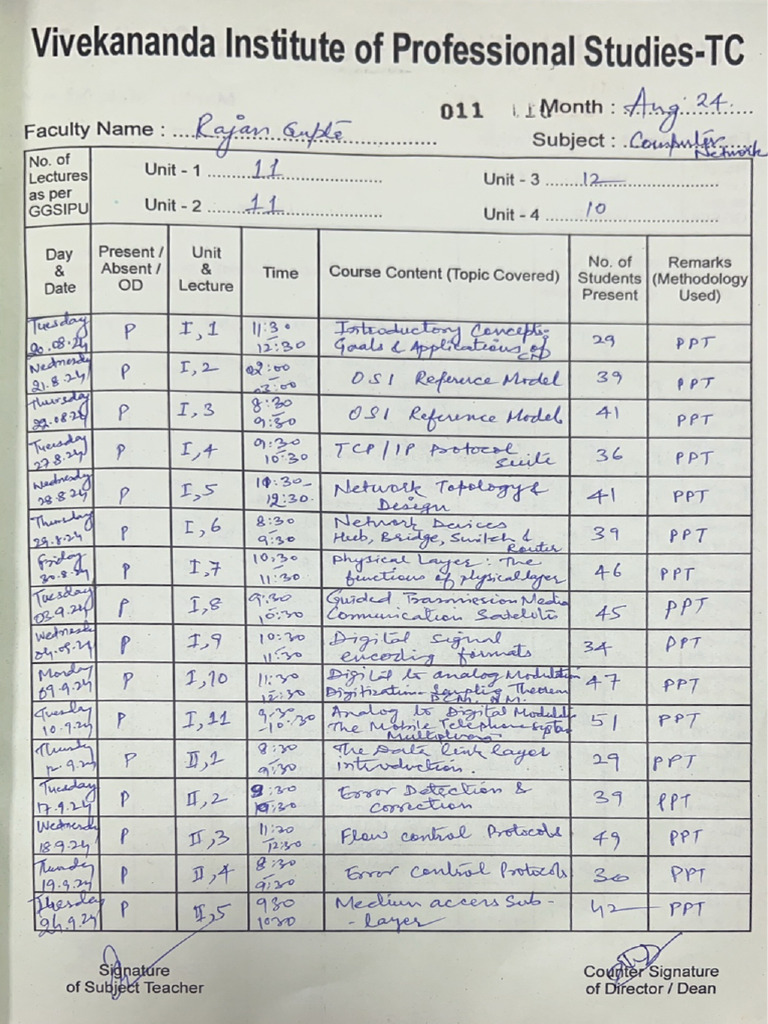 Vivekananda Institute of Professional Studies-TC
011 Month : Aug 24
Faculty Name : Rajan Gupta Subject : Computer Network
No. of Lectures as per GGSIPU
Unit - 1 11 Unit - 3 12
Unit - 2 11 Unit - 4 10
Day & Date Present / Absent / OD Unit & Lecture Time Course Content (Topic Covered) No. of Students Present Remarks (Methodology Used)
Tuesday 20.08.24 P I, 1 11:30 - 12:30 Introductory Concepts- Goals & Applications of CN 29 PPT
Wednesday 21.8.24 P I, 2 02:00 - 03:00 OSI Reference Model 39 PPT
Thursday 22.08.24 P I, 3 8:30 - 9:30 OSI Reference Model 41 PPT
Tuesday 27.8.24 P I, 4 9:30 - 10:30 TCP/IP Protocol Suite 36 PPT
Wednesday 28.8.24 P I, 5 12:30 Network Topology & Design 41 PPT
Thursday 29.8.24 P I, 6 8:30 - 9:30 Network Devices Hub, Bridge, Switch & Router 39 PPT
Friday 30.8.24 P I, 7 10:30 - 11:30 Physical Layer : The functions of physical layer 46 PPT
Tuesday 03.9.24 P I, 8 9:30 - 10:30 Guided Tranmission Media Communication Satelite 45 PPT
Wednesd 04.09.24 P I, 9 10:30 - 11:30 Digital Signal encoding formats 34 PPT
Monday 09.9.24 P I, 10 11:30 - 12:30 Digital to analog Modulation Digitization Sampling Theorem PCM 47 PPT
Tuesday 10.9.24 P I, 11 9:30 - 10:30 Analog to Digital Modul The Mobile Telephone System Multiplexing 51 PPT
12.9.24 P II, 1 8:30 - 9:30 The Data link layer introduction. 29 PPT
Tuesday 17.9.24 P II, 2 9:30 - 10:30 Error Detection & correction 39 PPT
Wednesd 18.9.24 P II, 3 11:30 - 12:30 Flow control Protocols 49 PPT
19.9.24 P II, 4 8:30 - 9:30 Error control Protocols 30 PPT
Tuesday 24.9.24 P II, 5 930 - 1030 Medium access Sub - - layer 42 PPT
Signature of Subject Teacher
Counter Signature of Director / Dean